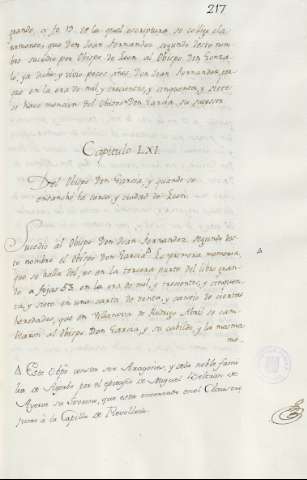 217
grande, a fo 13. de la qual escriptura, se colige cla
ramente, que Don Juan Fernandez segundo deste nom
bre sucedio por Obispo de Leon al Obispo Don Gonza
lo, ya dicho y vivio pocos años, Don Juan Fernandez, por
que en la era de mil y trecientos, y cinquenta, y siete
se hace mencion del Obispo Don Garcia, su sucesor.
Capitulo LXI.
Del Obispo Don Garcia, y quando se
ensancho la cerca, y ciudad de Leon.
Sucedio al Obispo Don Juan Fernandez segundo des
te nombre el Obispo Don Garcia Δ. La primera memoria,
que se halla del, es en la tercera parte del libro gran
de a fojas 53. en la era de mil, y trecientos, y cinquen
ta, y siete en una carta de renta, y concejo de ciertas
heredades, que en Villanueva de Rodrigo Abril se cam
biaron al Obispo Don Garcia, y su cabildo, y la misma
me
Δ Este Obpo consta ser Aragones, y de la noble fami
lia de Ayerbe, por el epitafio de Miguel Beltran de
Ayerve su sobrino, que esta enterrado en el Claustro
junto a la Capilla de